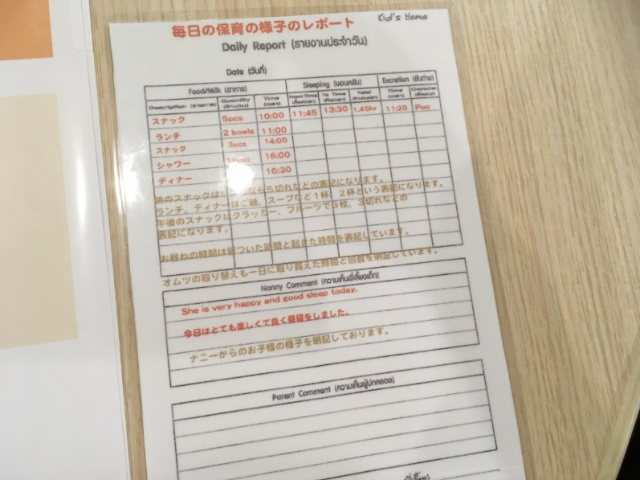 毎日の保育の様子のレポート
Kid's Name
Daily Report (รายงานประจำวัน)
Date (วันที่)
Food/Milk (อาหาร) Sleeping (นอนหลับ) Excretion (ขับถ่าย)
Description Quantity Time From Time To Time Total Time Character
スナック 5pcs 10:00 11:45 13:30 1.45hr 11:20 Poo
ランチ 2 bowls 11:00
スナック 3pcs 14:00
シャワー 16:00
ディナー 16:30
切れなどの表記になります。
ランチ、ディナーはご飯、スープなど1杯、2杯という表記になります。
午後のスナックにクラッカー、フルーツで3枚、3切れなどの
表記になります。
お昼ねの時間は寝ついた時間と起きた時間を表記しています。
オムツの取り替えも一日に取り替えた時間と回数を明記しています。
Nanny Comment (ความเห็นพี่เลี้ยงเด็ก)
She is very happy and good sleep today.
今日はとても楽しくて良く昼寝をしました。
ナニーからのお子様の様子を明記しております。
Parent Comment (ความเห็นผู้ปกครอง)